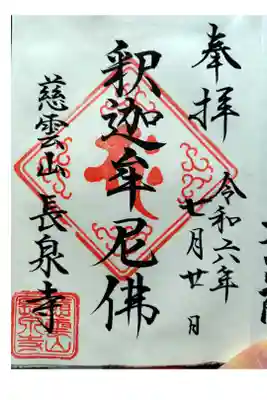 奉拝
令和六年
七月廿日
釈迦牟尼佛
慈雲山
長泉寺